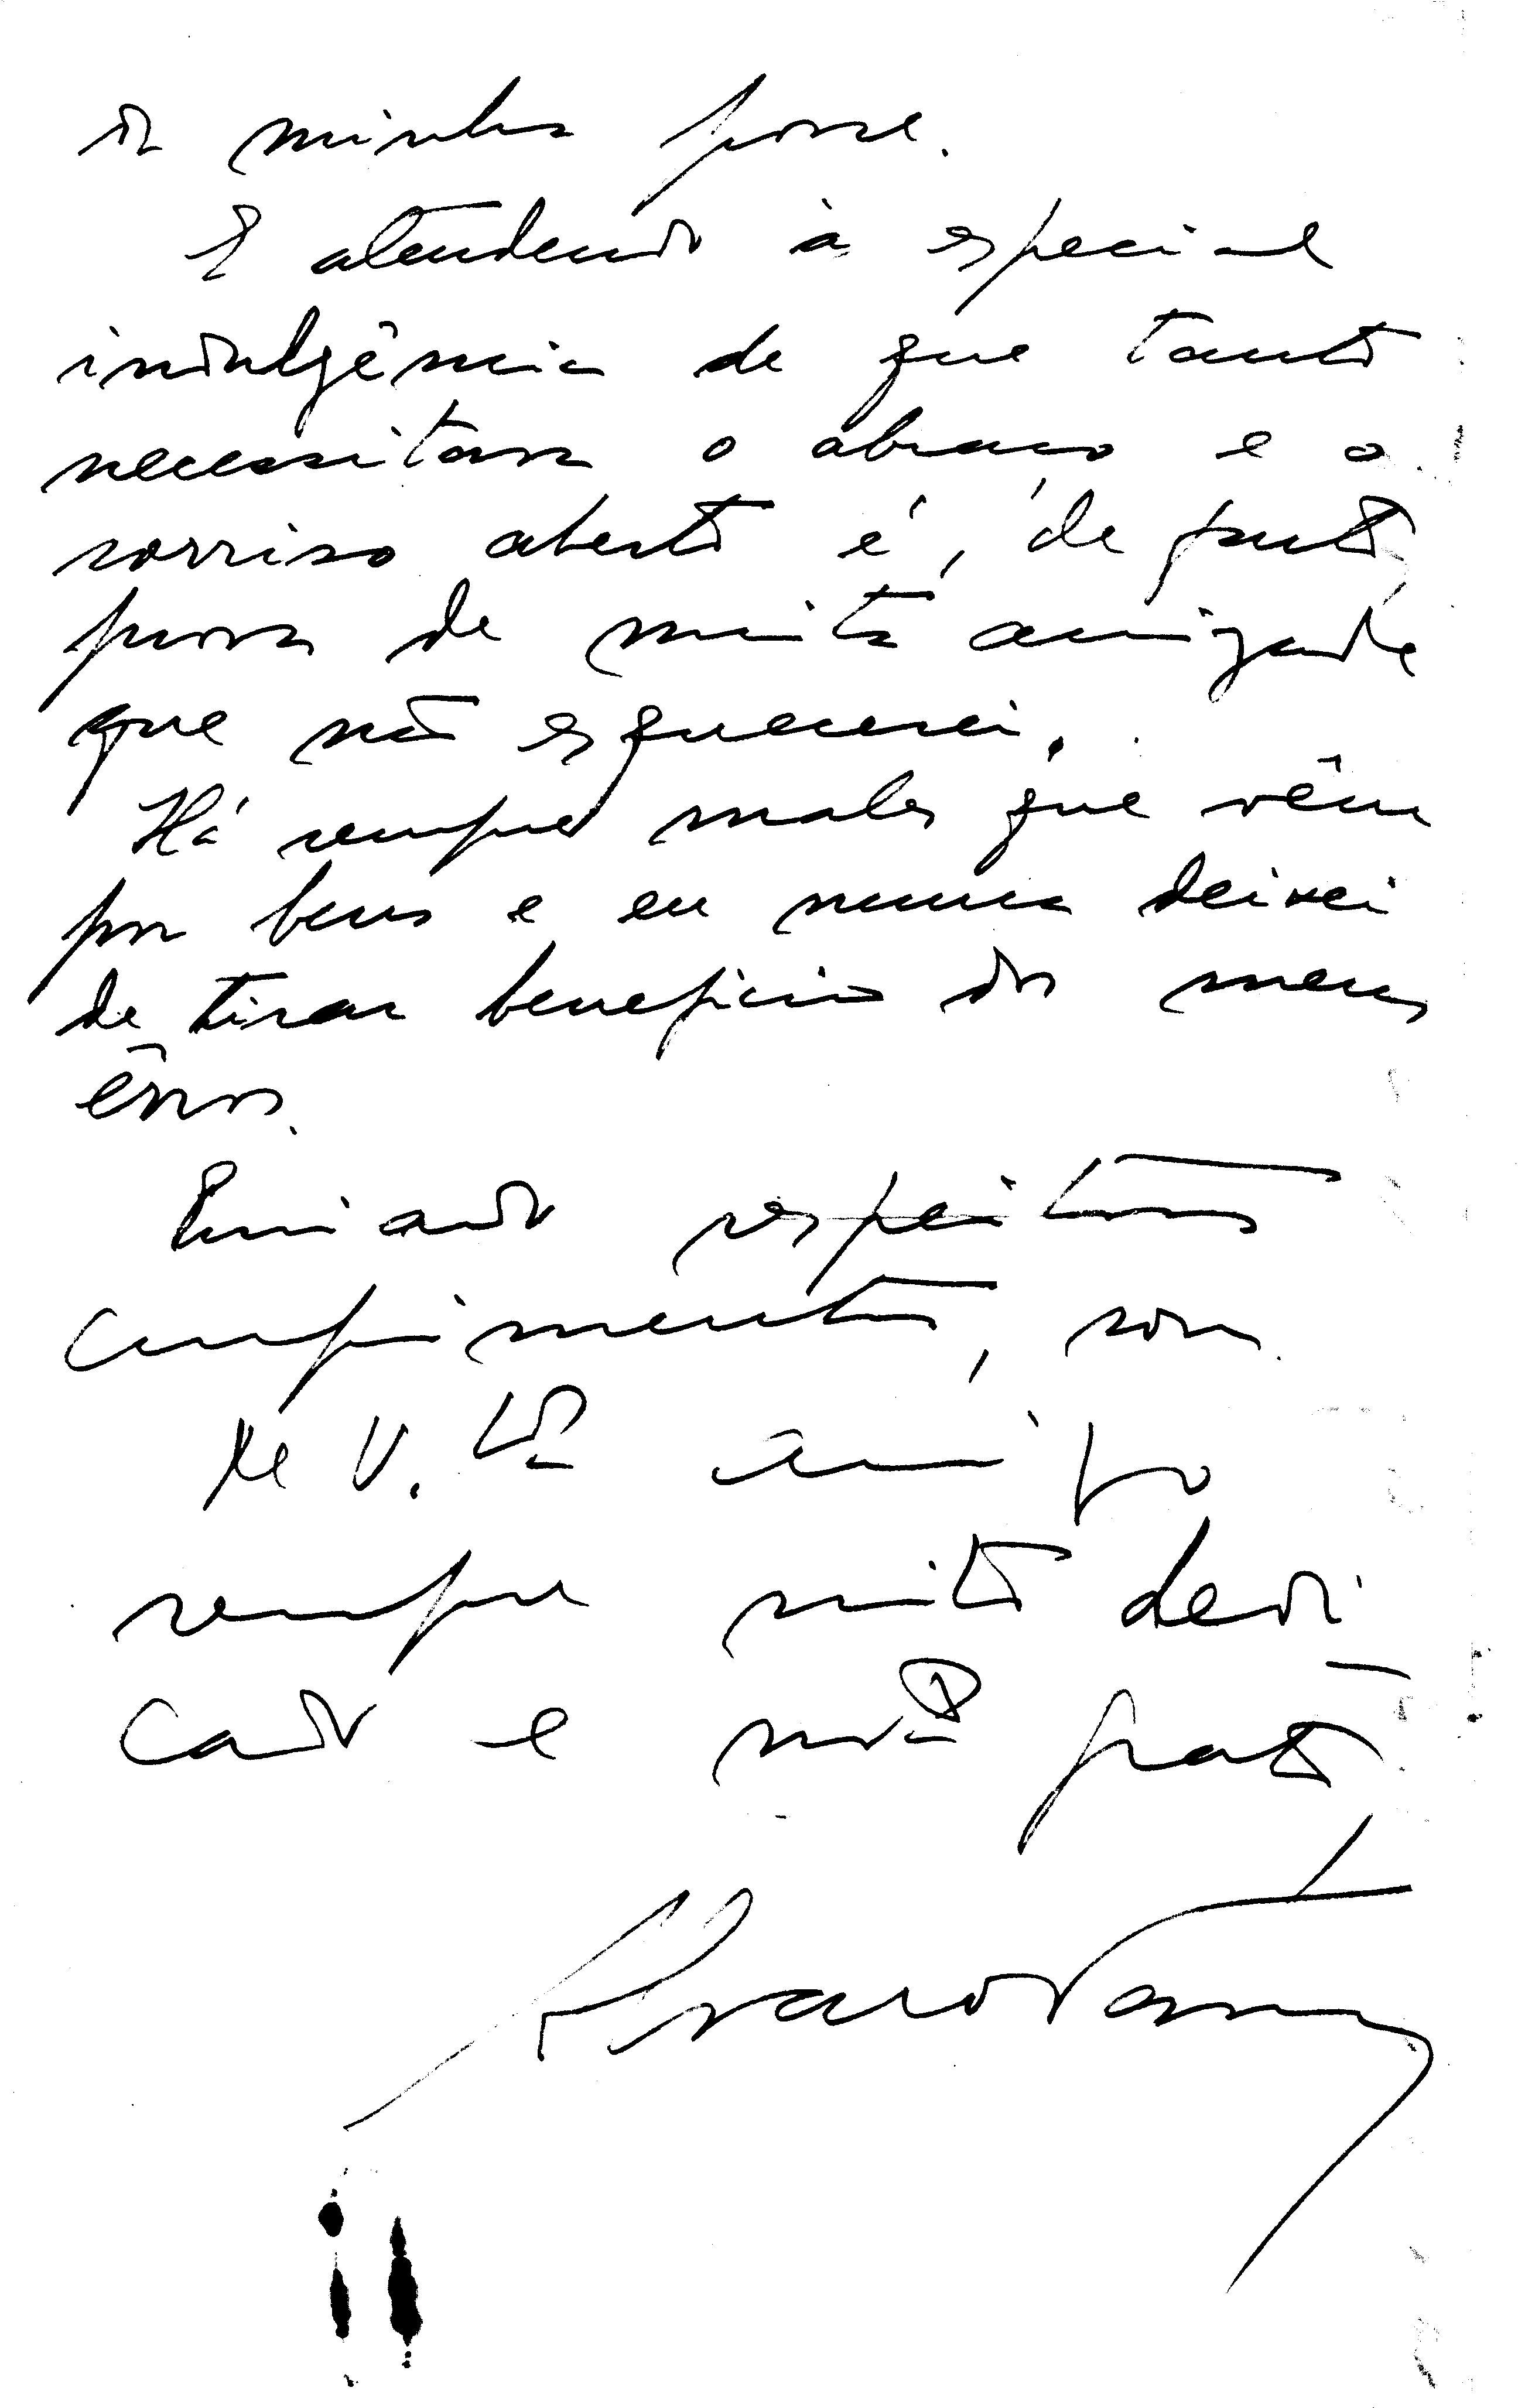 da minha posse.
E atendendo à especial
indulgência de que tanto
necessitava o abraço e o
sorriso aberto é, de facto,
prova de muita amizade
que não esquecerei.
Há sempre males que vêm
por bens e eu nunca deixei
de tirar benefícios dos meus
êrros.
Enviando respeitosos
cumprimentos, sou
de V. amigo
sempre muito dedi
cado e grato